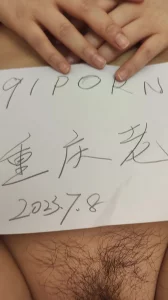 91PORN
重庆老
2023.7.8